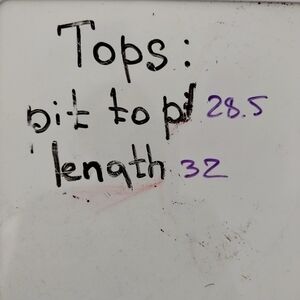 Tops:
pit to p 28.5
length 32